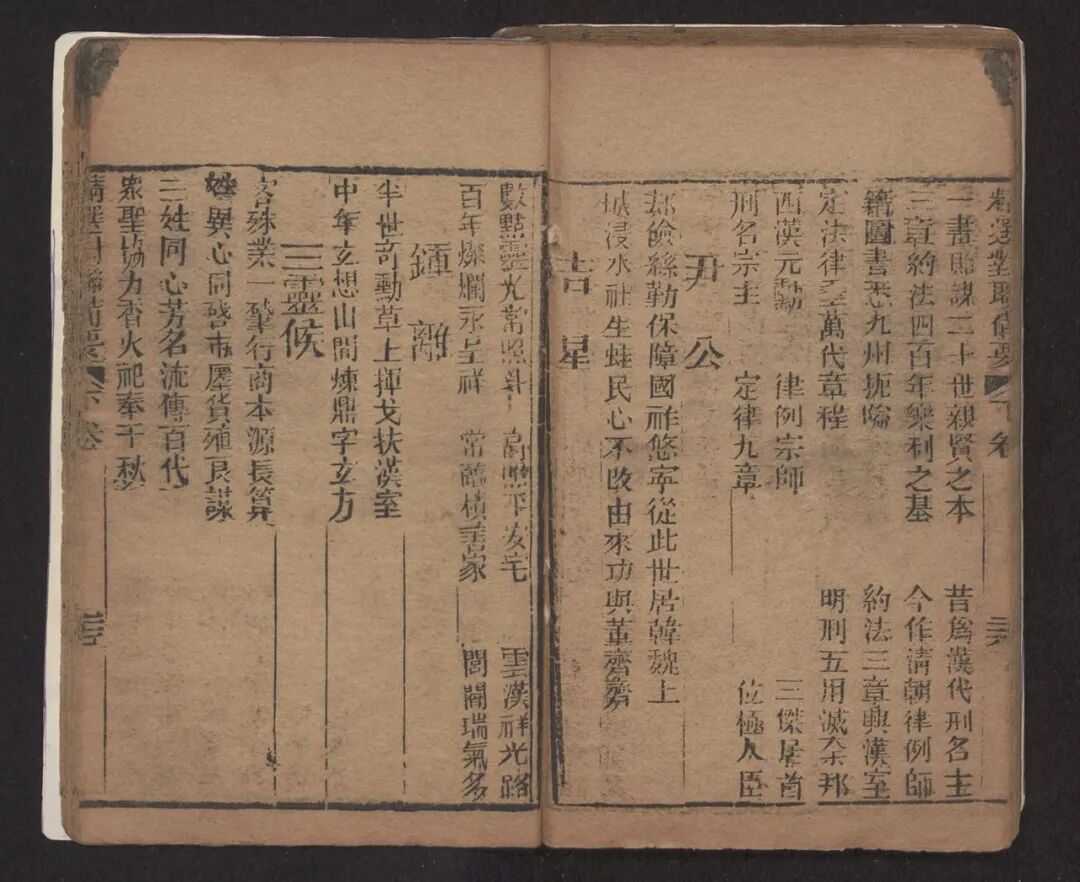 精選對聯備要 下卷
一畫貽謀二十世親賢之本 昔爲漢代刑名主
三章約法四百年樂利之基 今作淸朝律例師
籍圖書悉九州扼喻 約法三章興漢室
定法律至萬代章程 明刑五用滅秦邦
西漢元勳 律例宗師 三傑居首
刑名宗主 定律九章 位極人臣
尹公
儉絲勤保障國祚悠寧從此世居韓魏上
城浸水社生蛙民心不改由來功與董齊
吉星
數點靈光常照斗 高照平安宅 雲漢祥光路
百年燦爛永呈祥 常臨積善家 閭閻瑞氣多
鍾離
半世奇勳草上揮戈扶漢室
中年立想山間煉鼎字立方
三靈候
客殊業一肇行商本源長算
姓異心同啓市廛貨殖良謀
三姓同心芳名流傳百代
衆聖協力香火祀奉千秋
精選對聯備要 下卷